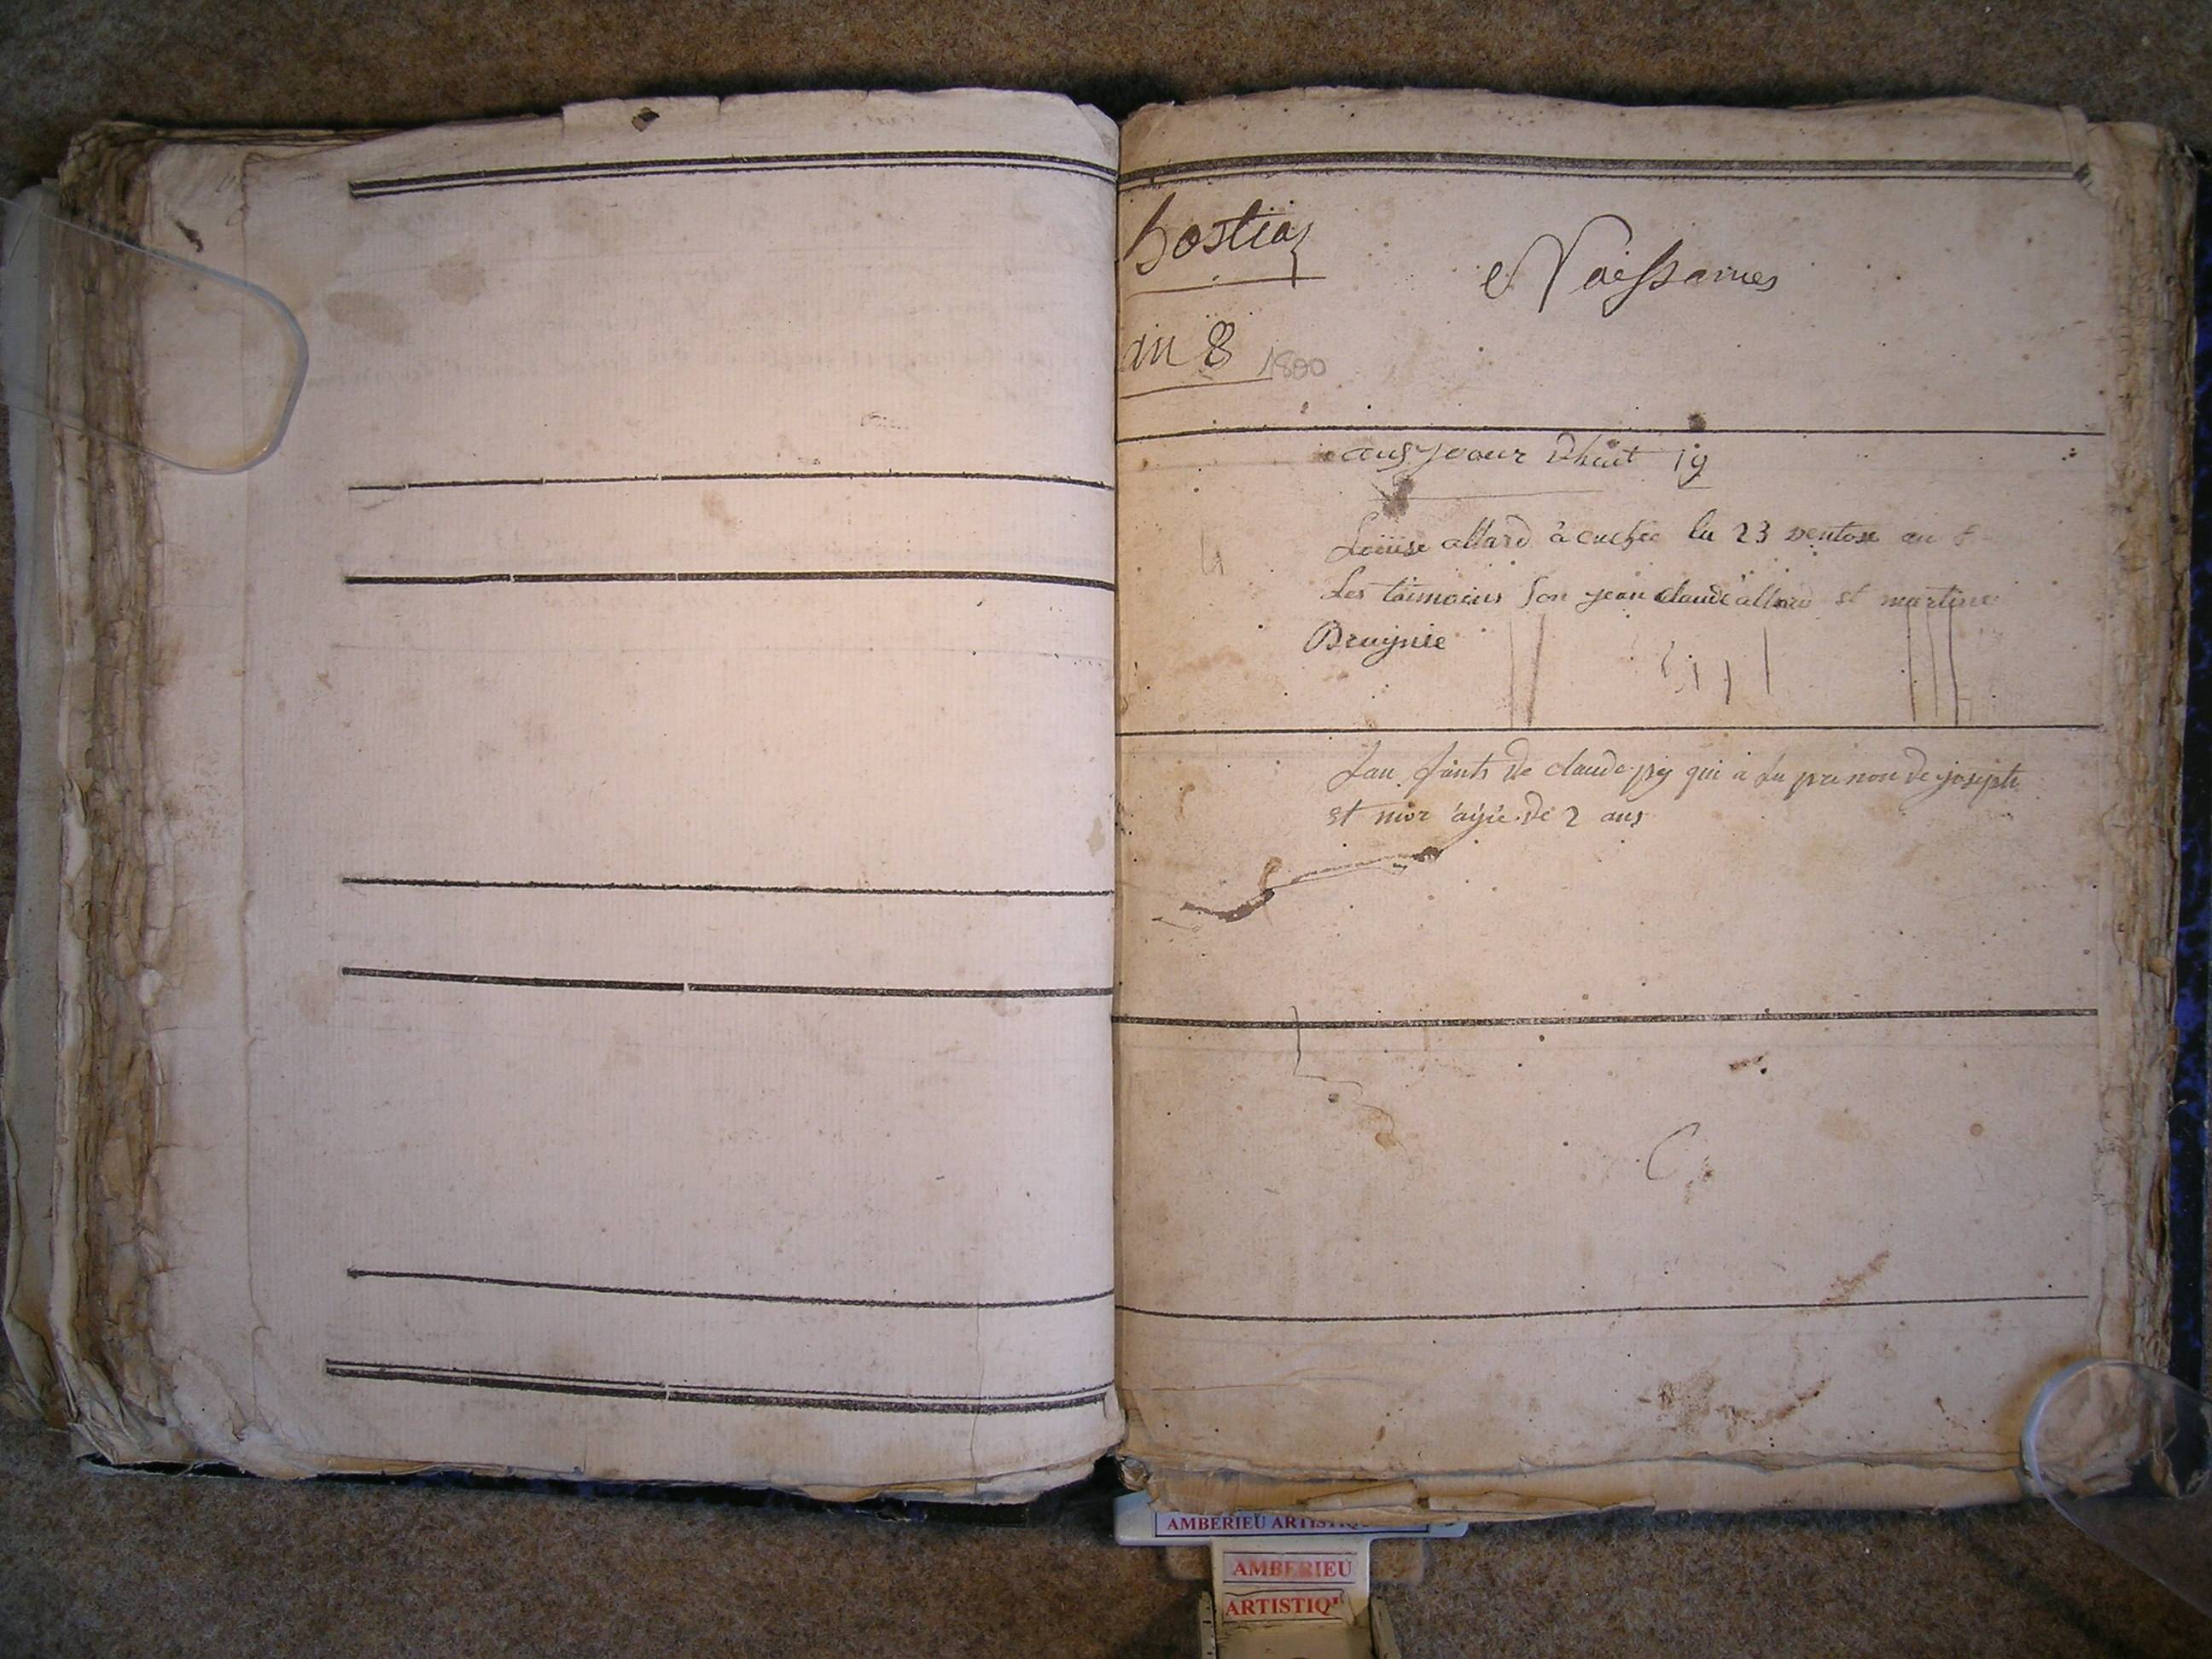 hostiaz
Naissances
an 8 1800
aujjour dhuit 19
Louise allard à cuchée lu 23 ventose an 8
Les taimoins son jean claude allard et martine
Brugnie
Lan fants de claude pij qui a lu prenon de joseph
et mor agée de 2 ans
AMBERIEU ARTISTIQ
AMBERIEU
ARTISTIQ